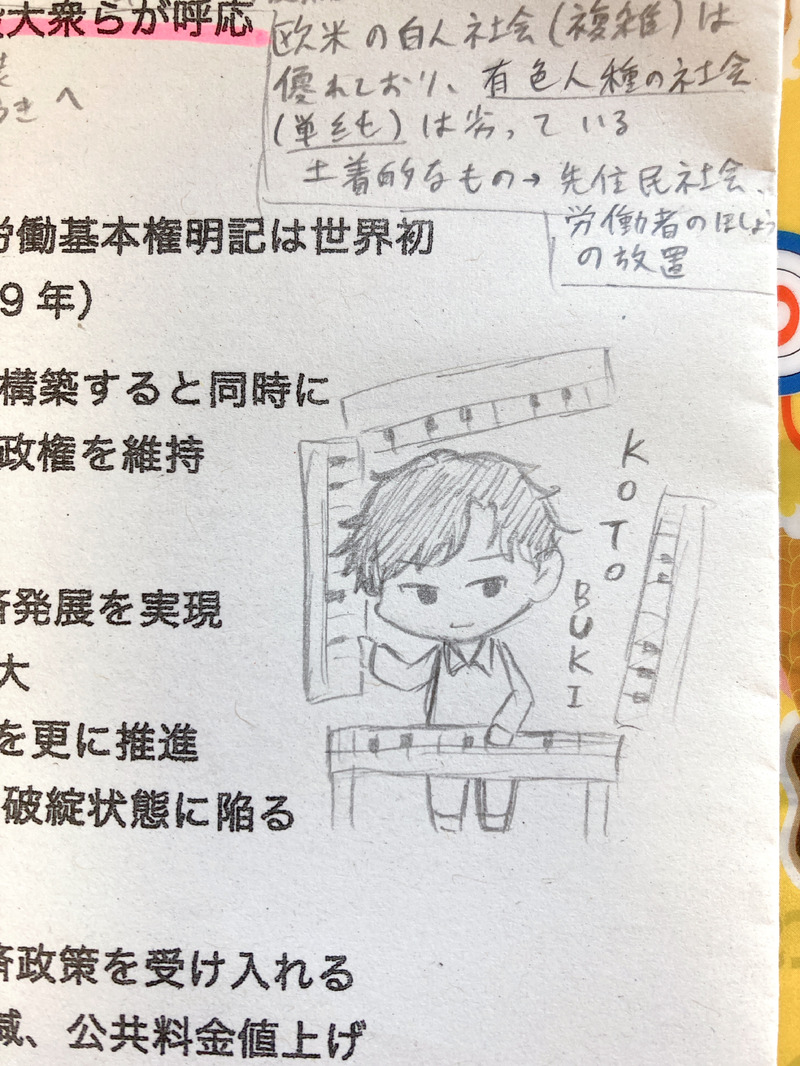 大衆らが呼応
欧米の白人社会(複雑)は
優れており、有色人種の社会
(単純)は劣っている
土着的なもの→先住民社会、
労働者のほしょう
の放置
へ
労働基本権明記は世界初
9年)
構築すると同時に
政権を維持
KOTO
BUKI
済発展を実現
大
を更に推進
破綻状態に陥る
済政策を受け入れる
減、公共料金値上げ